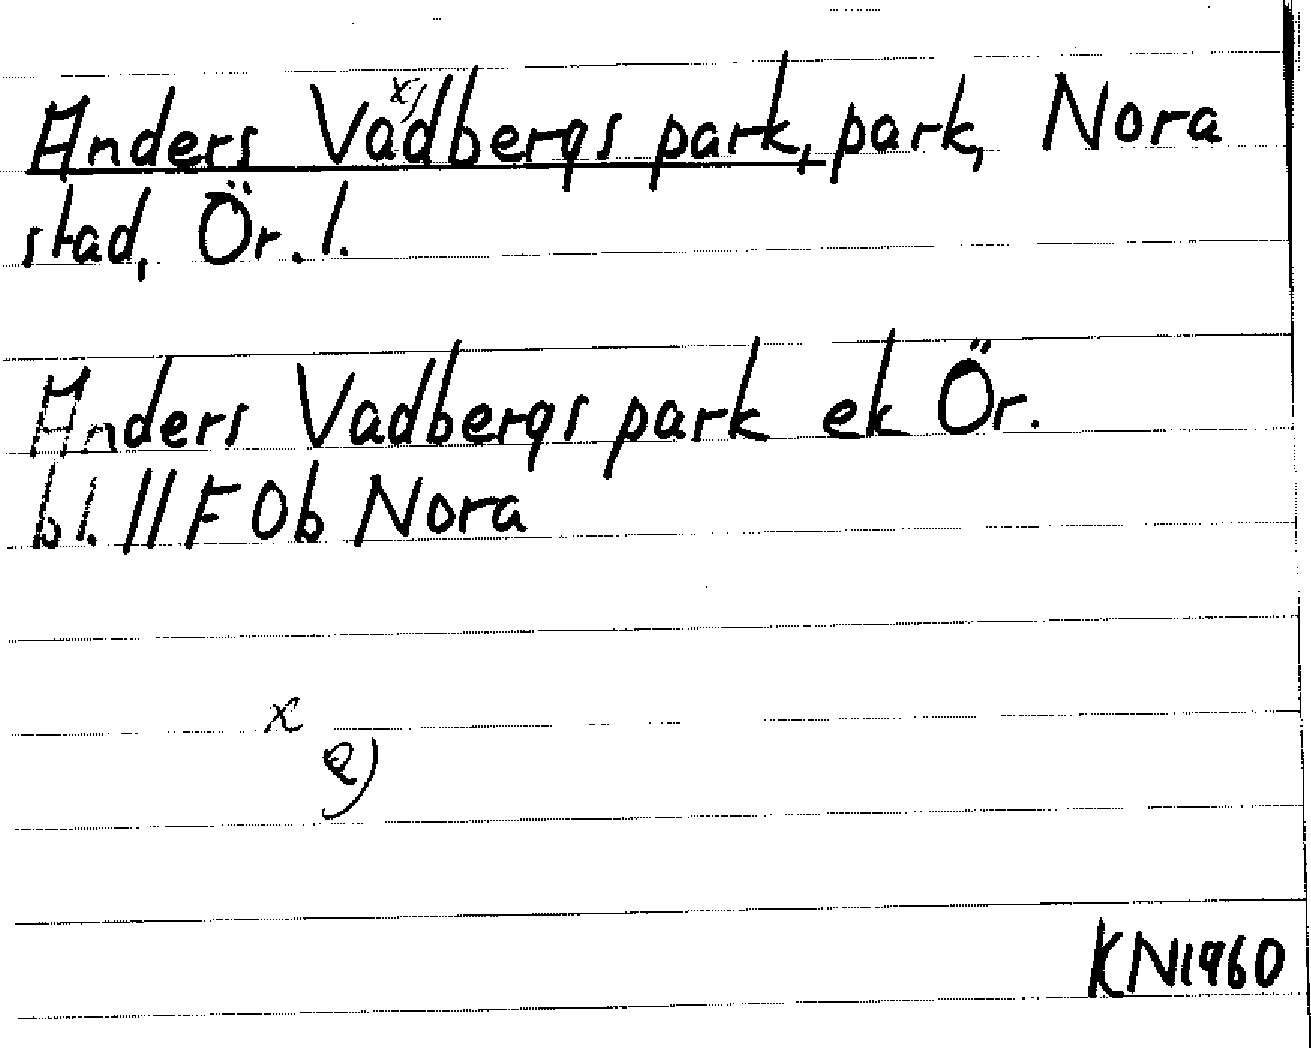 Anders Vadbergs park, park, Nora
stad, Ör. l.
Anders Vadbergs park ek Ör.
bl. 11F 0b Nora
x
e)
KN1960